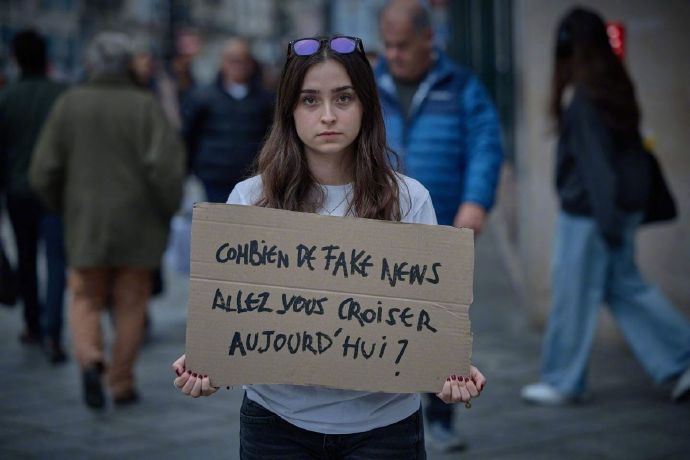 COMBIEN DE FAKE NEWS
ALLEZ VOUS CROISER
AUJOURD'HUI ?